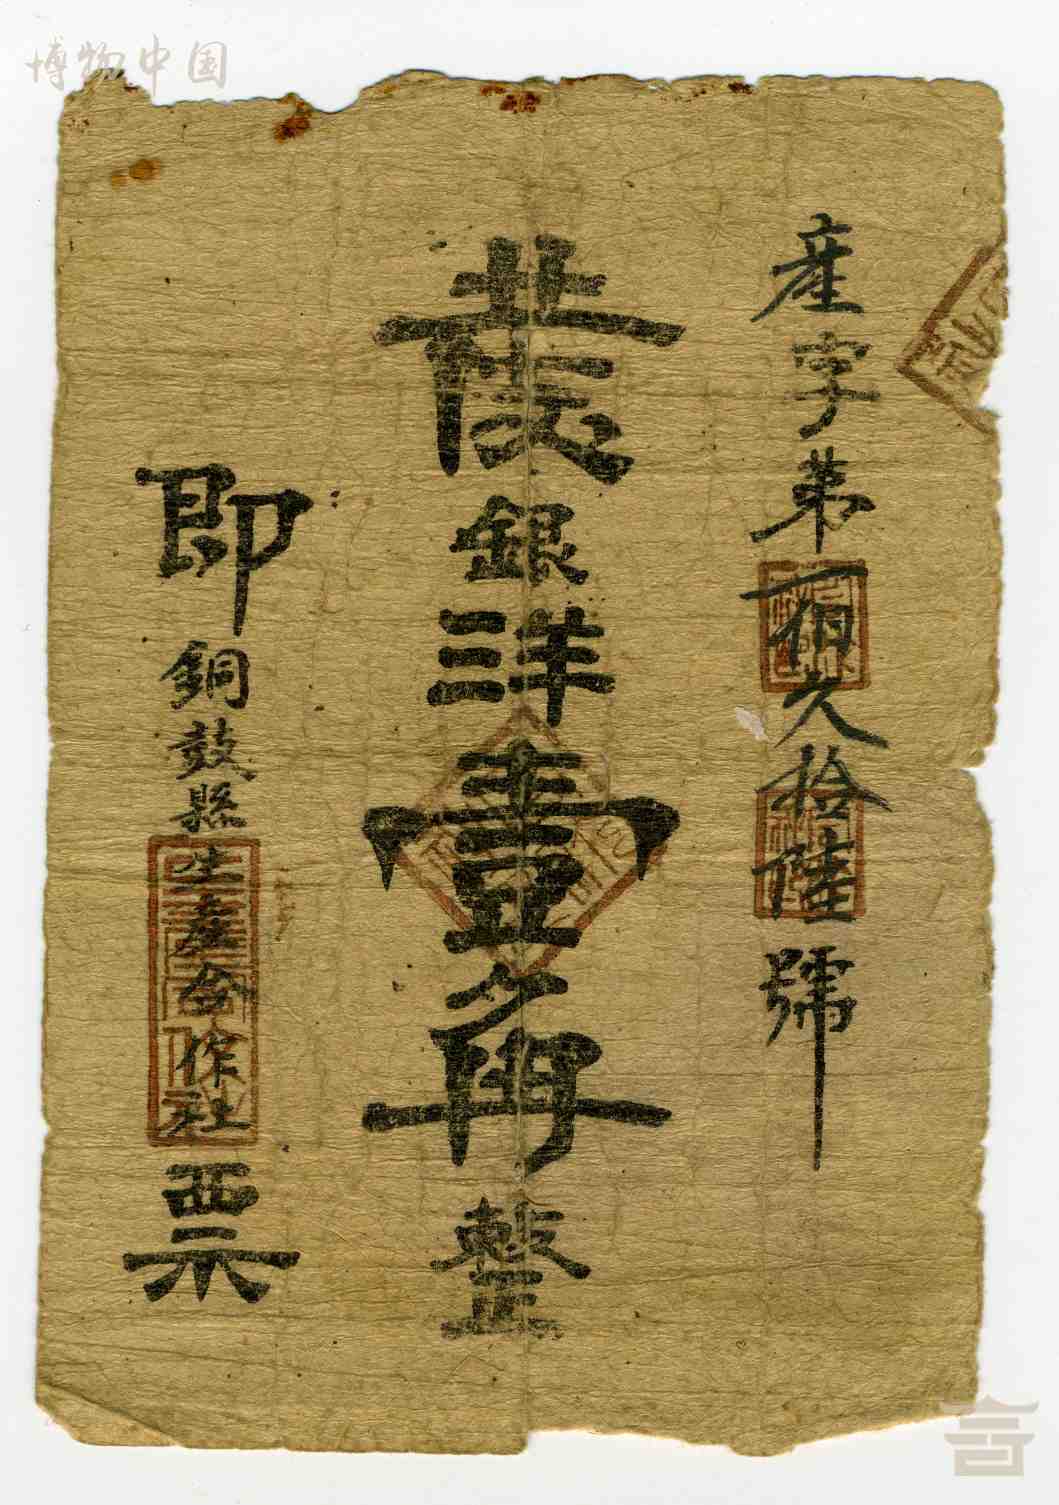 博物中国
產字第一佰久拾陸號
銀洋壹角整
即銅鼓縣生產合作社票